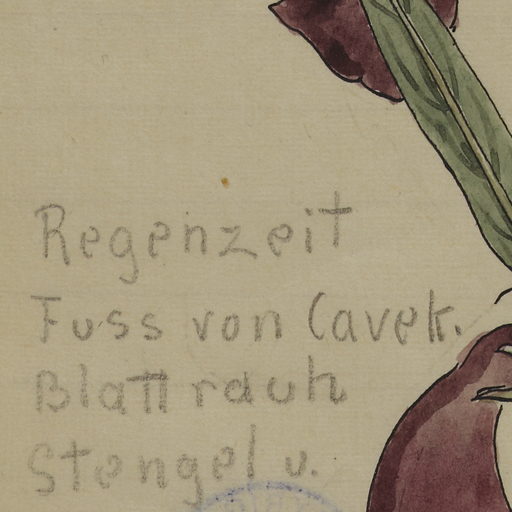 Regenzeit
Fuss von Cavek.
Blatt rauh
Stengel u.